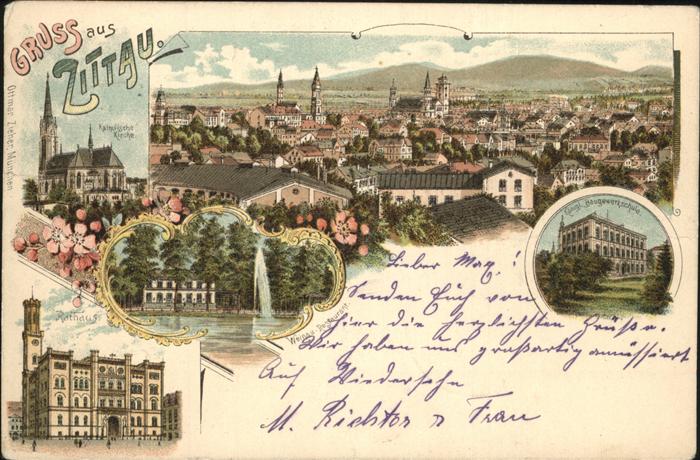 GRUSS aus
ZITTAU.
Ottmar Zieher, München
Katholische
Kirche
Königl. Baugewerkschule.
Weinau-Restaurant
Rathaus
Lieber Max!
Senden Euch von
hier die herzlichsten Grüße.
Wir haben uns großartig amüssiert
Auf Wiedersehn
M. Richter & Frau